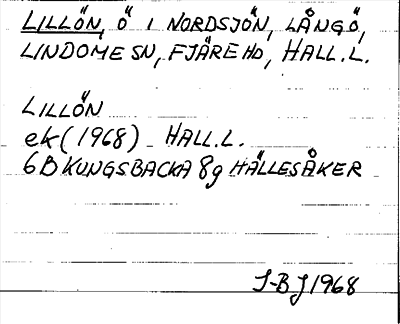 LILLÖN, Ö I NORDSJÖN, LÅNGÖ,
LINDOME SN, FJÄRE HD, HALL.L.
LILLÖN
ek (1968) HALL.L.
6B KUNGSBACKA 8g HÄLLESÅKER
J-BJ 1968